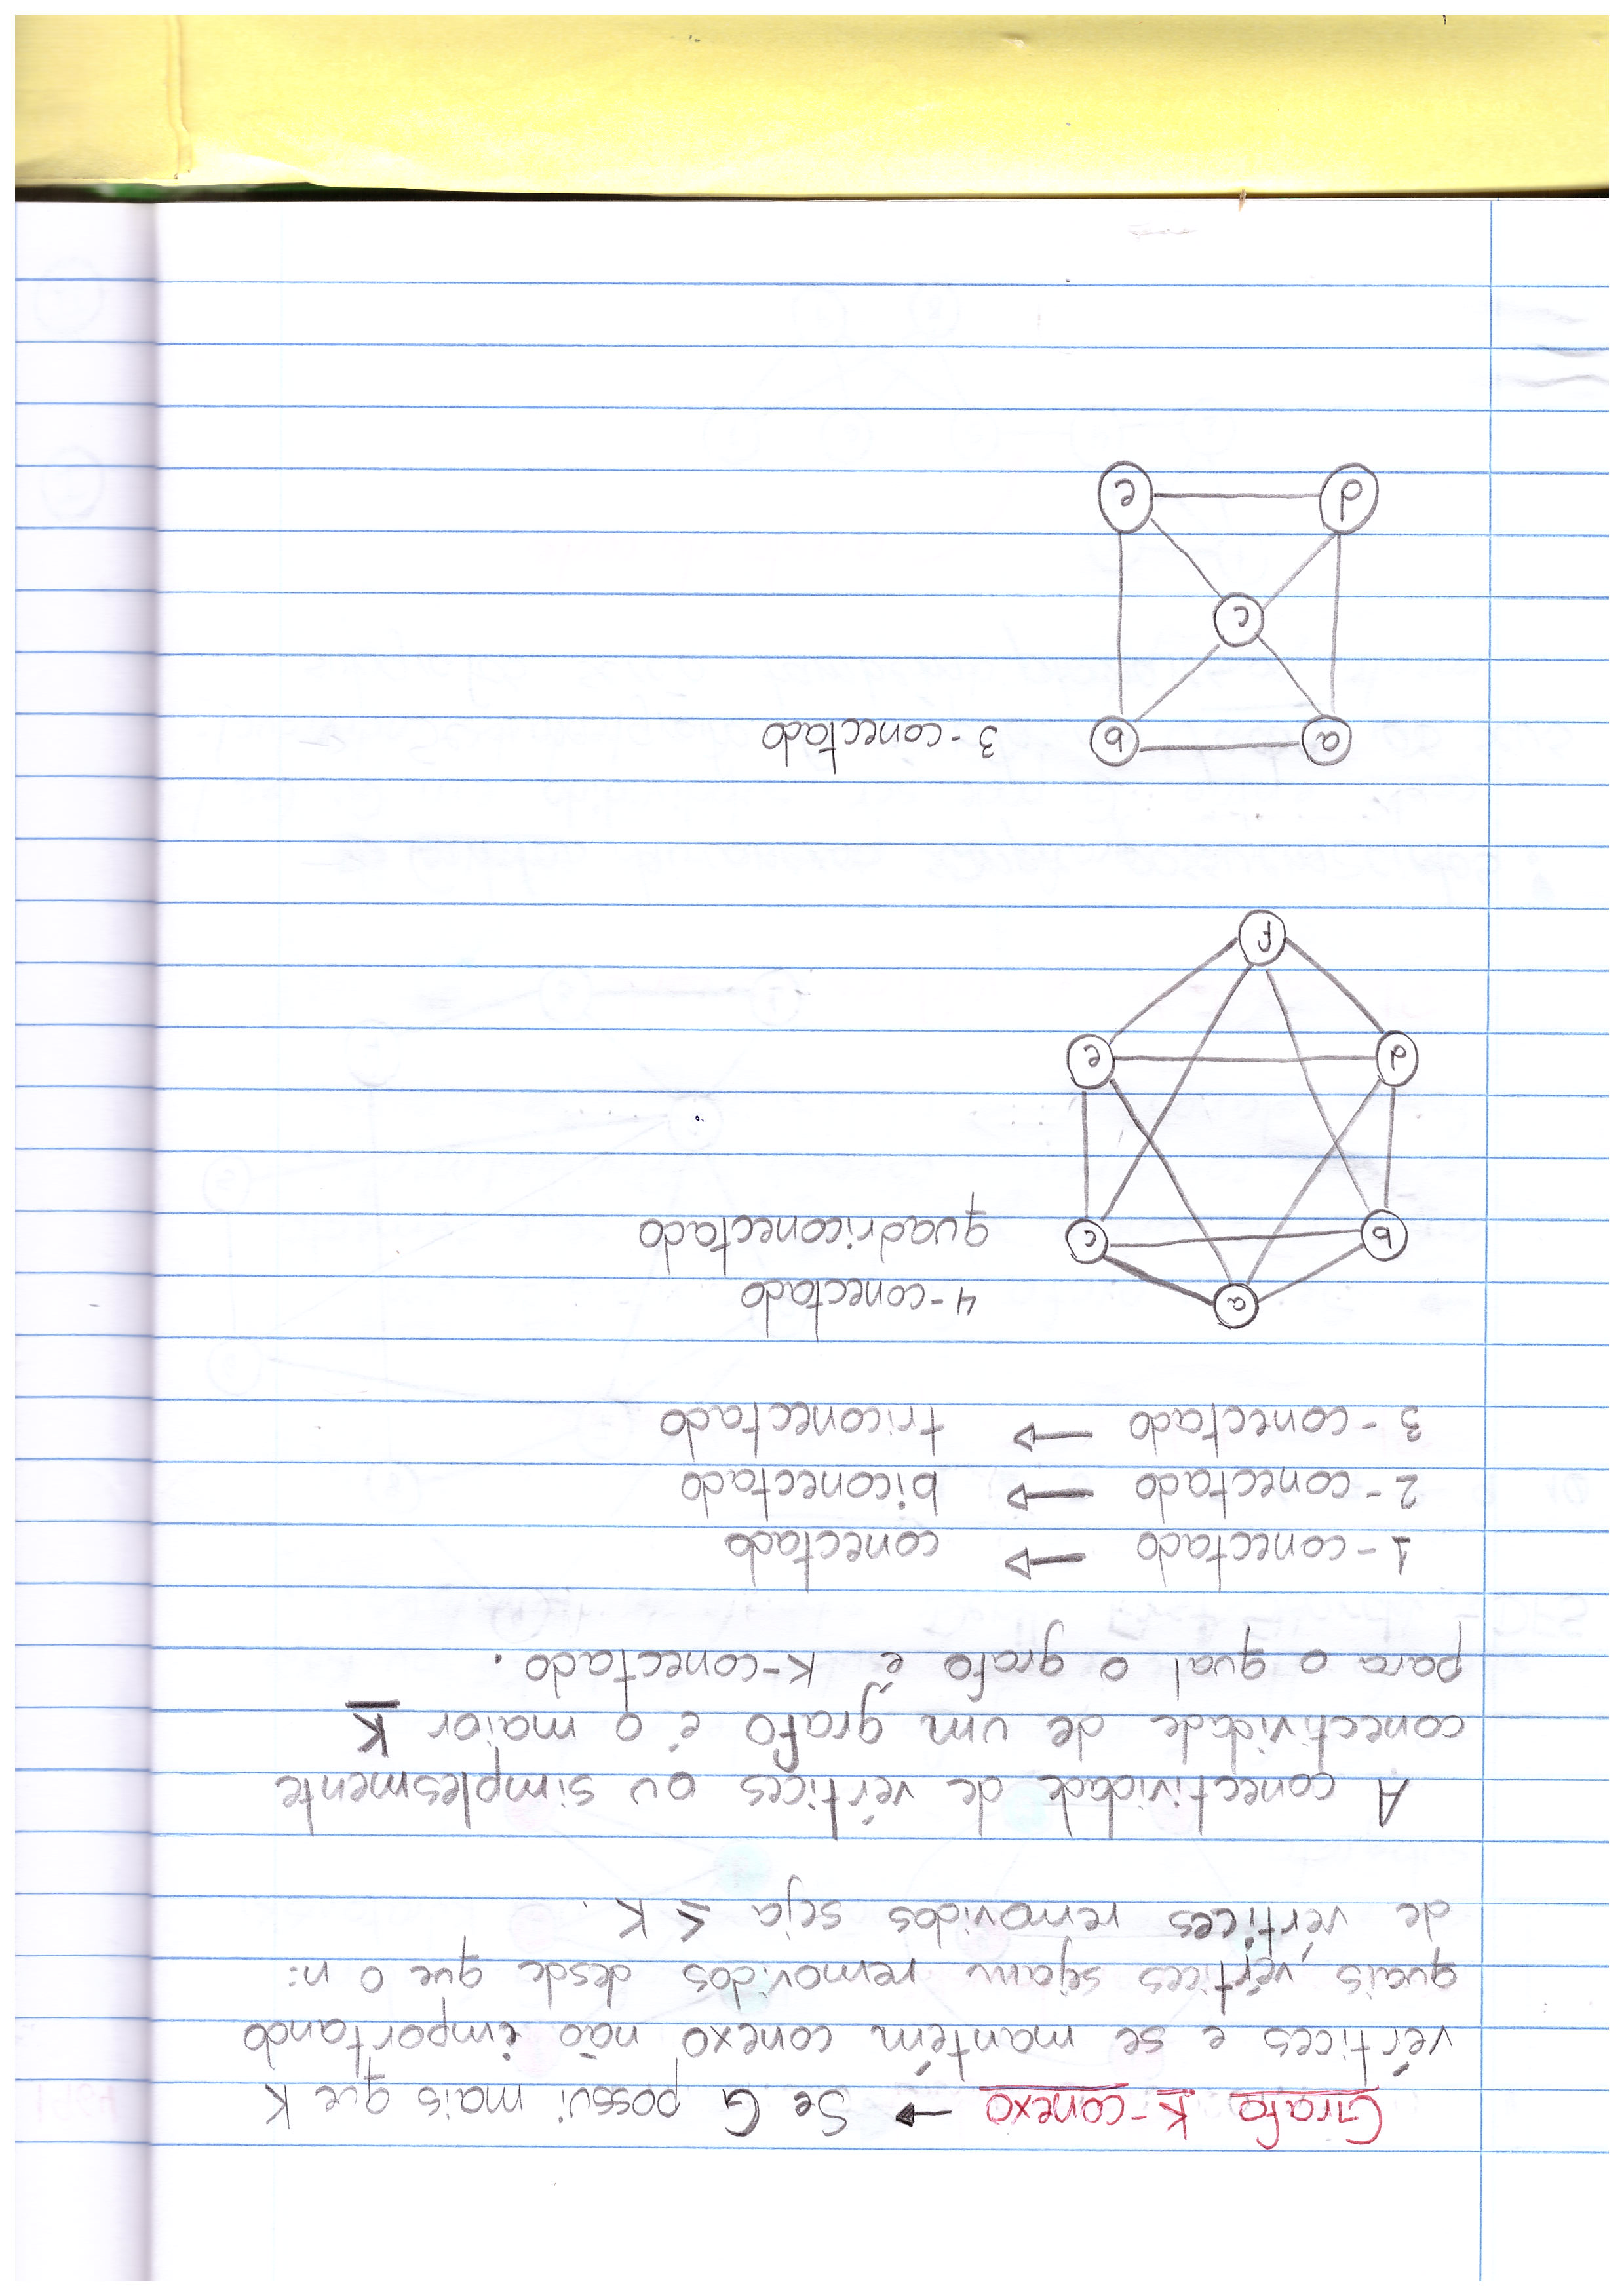 Grafo K-conexo → Se G possui mais que K
vértices e se mantém conexo não importando
quais vértices sejam removidos desde que o n:
de vértices removidos seja ≤ K.
A conectividade de vértices ou simplesmente
conectividade de um grafo é o maior K
para o qual o grafo é K-conectado.
1-conectado → conectado
2-conectado → biconectado
3-conectado → triconectado
4-conectado
quadriconectado
a
b c
d e
f
3-conectado
a b
c
d e